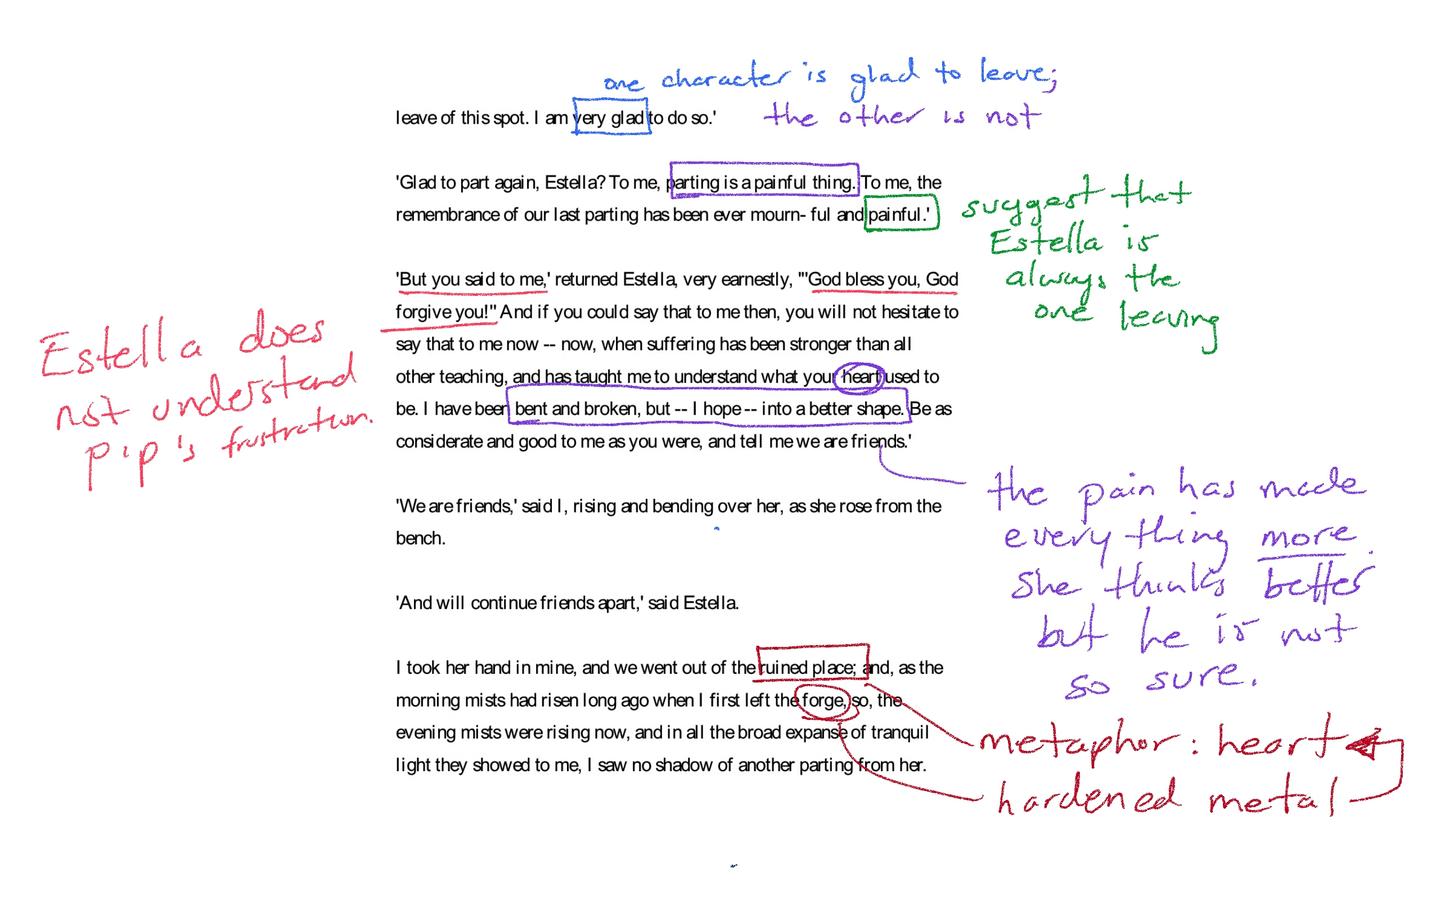 one character is glad to leave;
leave of this spot. I am very glad to do so.'
the other is not
'Glad to part again, Estella? To me, parting is a painful thing. To me, the
remembrance of our last parting has been ever mourn- ful and painful.'
suggest that
Estella is
always the
one leaving
'But you said to me,' returned Estella, very earnestly, "'God bless you, God
forgive you!" And if you could say that to me then, you will not hesitate to
say that to me now -- now, when suffering has been stronger than all
other teaching, and has taught me to understand what your heart used to
be. I have been bent and broken, but -- I hope -- into a better shape. Be as
considerate and good to me as you were, and tell me we are friends.'
Estella does
not understand
Pip's frustration.
'We are friends,' said I, rising and bending over her, as she rose from the
bench.
the pain has made
everything more.
She thinks better
but he is not
so sure.
'And will continue friends apart,' said Estella.
I took her hand in mine, and we went out of the ruined place; and, as the
morning mists had risen long ago when I first left the forge, so, the
evening mists were rising now, and in all the broad expanse of tranquil
light they showed to me, I saw no shadow of another parting from her.
metaphor: heart
hardened metal